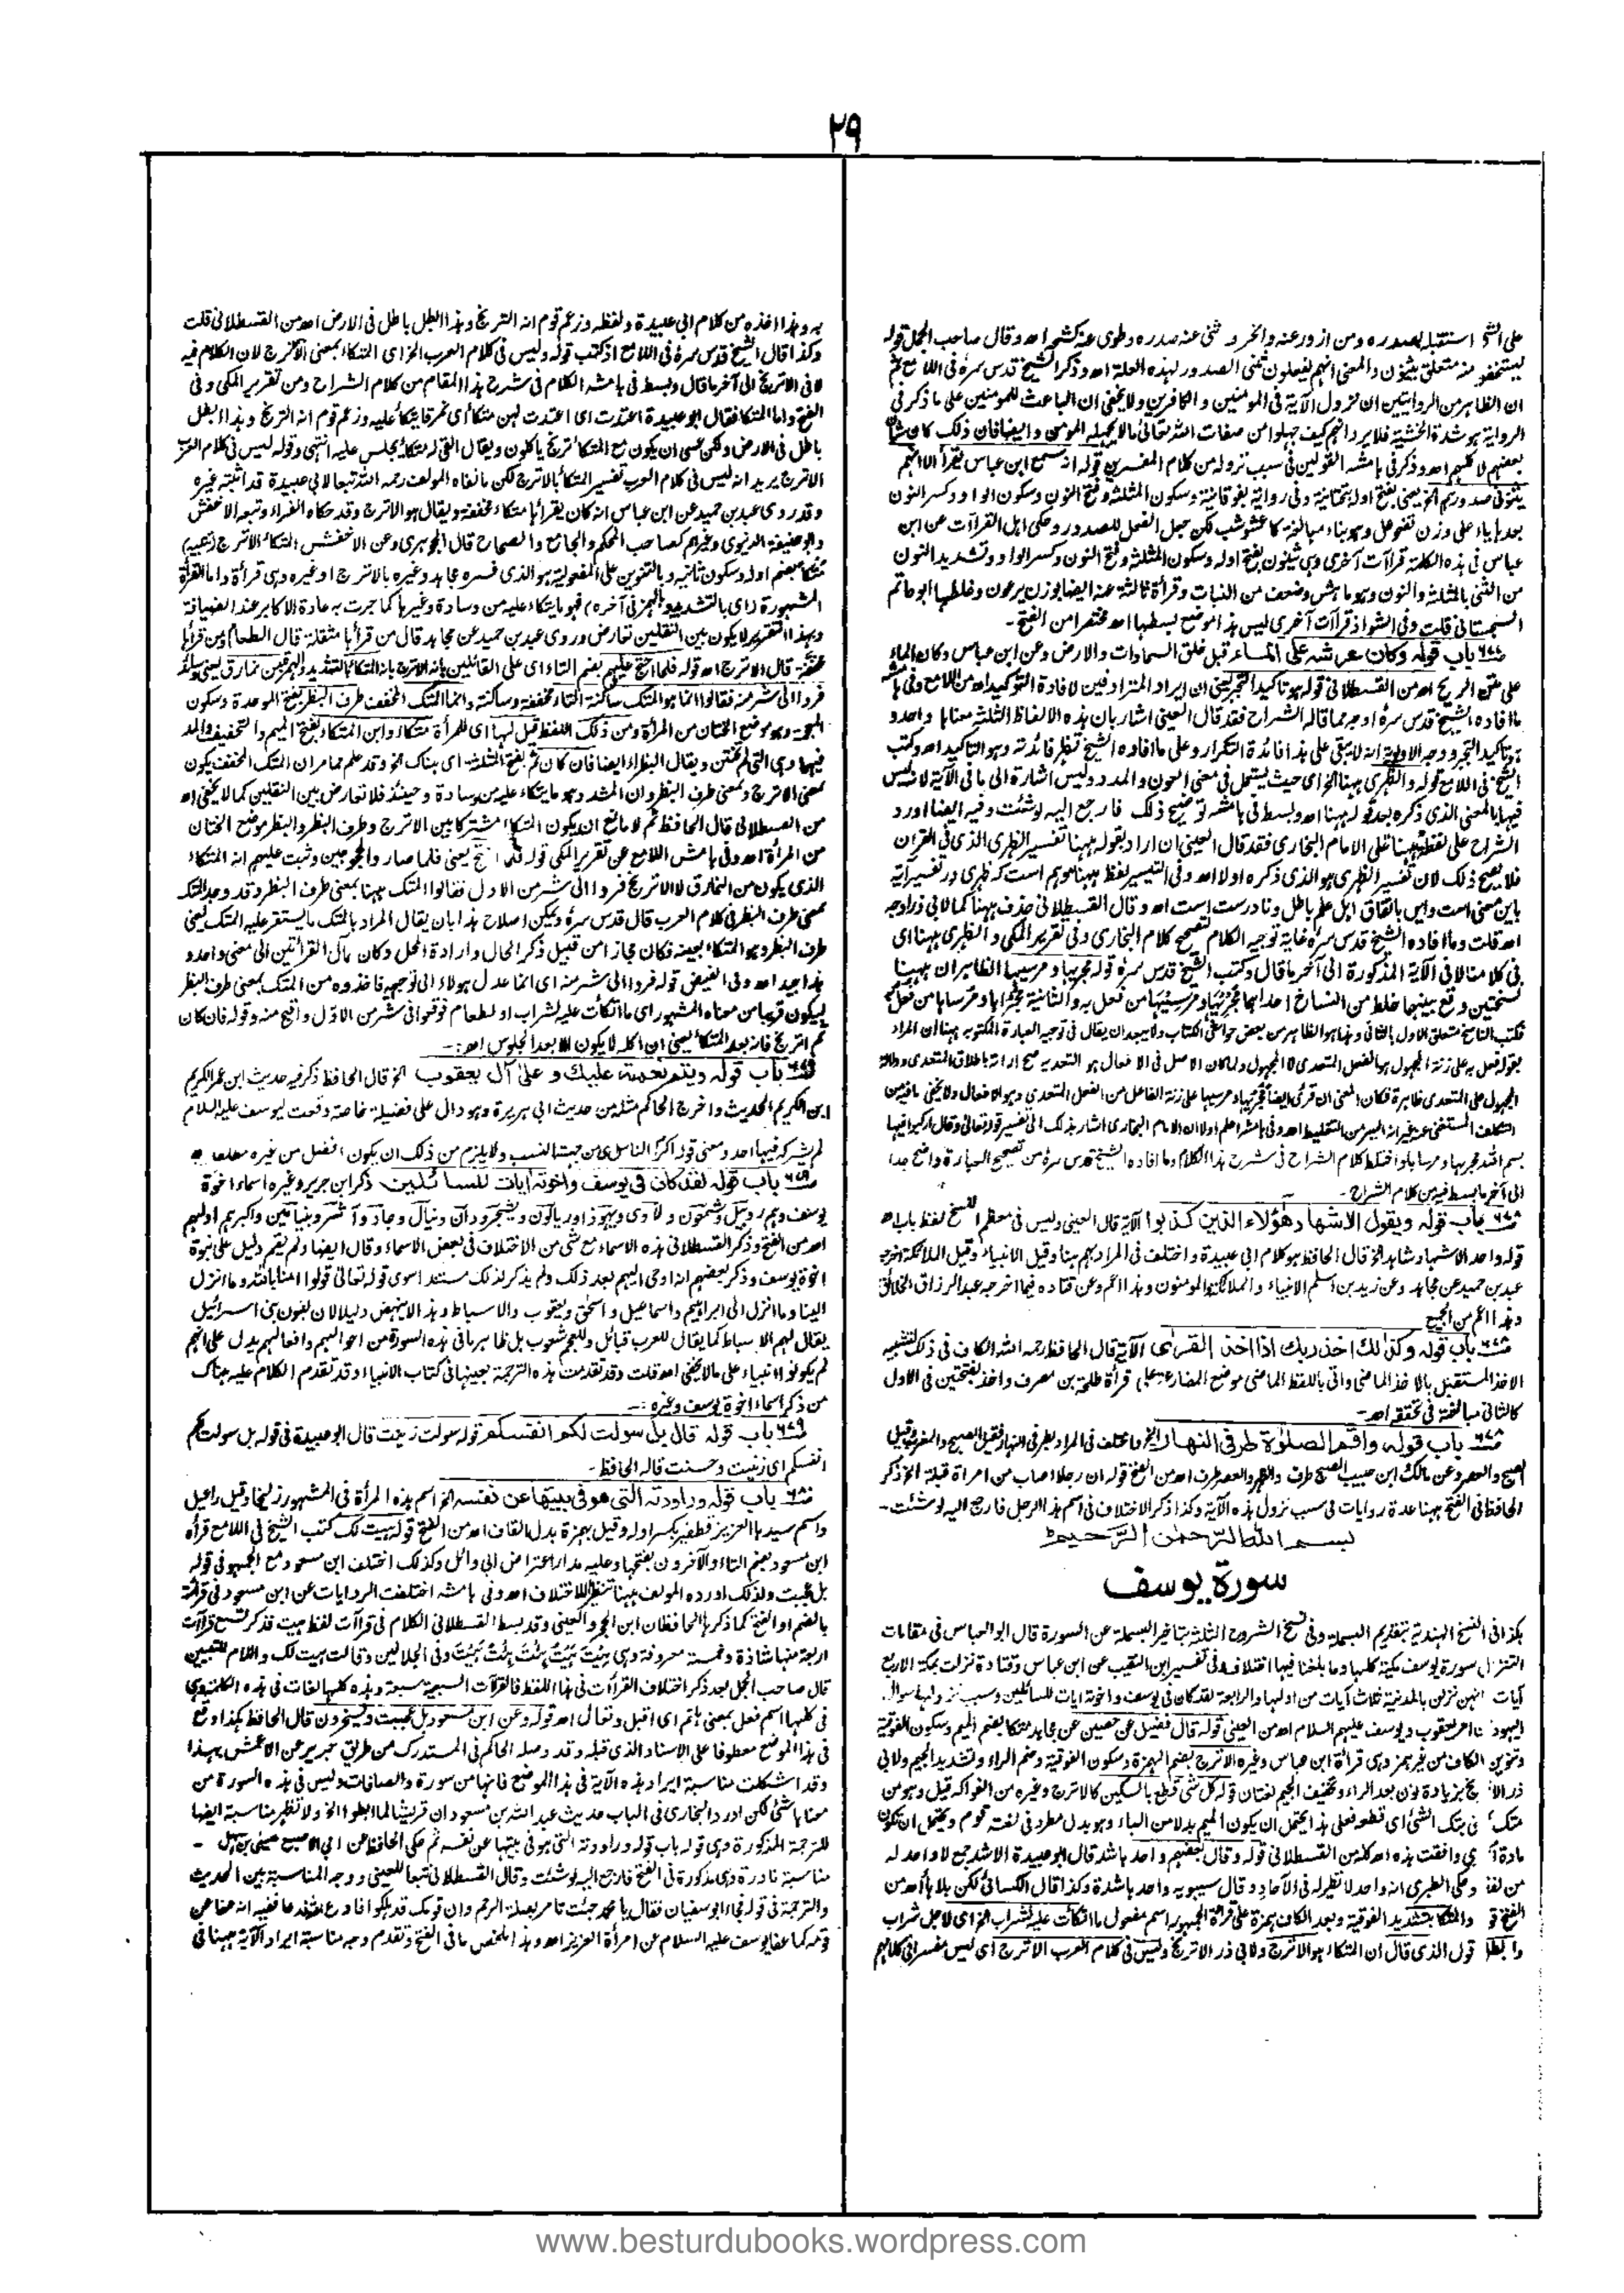 ٢٩
على الشئ استقبله بصدره ومن ازور عنه وانحرف ثنى عنه صدره وطوى عنه كشحه اهـ وقال صاحب الجمل قوله
ليستخفوا منه متعلق بيثنون والمعنى انهم يفعلون ثنى الصدور لهذه العلة اهـ وذكر الشيخ قدس سره فى اللامع ثم
ان الظاهر من الروايتين ان نزول الآية فى المومنين والكافرين ولا يخفى ان الباعث للمومنين على ما ذكر فى
الرواية هو شدة الخشية فلا يرد انهم كيف جهلوا من صفات الله تعالى مالا يجهله المومن وايضا فان ذلك كان شأن
بعضهم لا كلهم اهـ وذكر فى هامشه القولين فى سبب نزوله من كلام المفسرين قوله انه سمع ابن عباس يقرأ الا انهم
يثنونى صدورهم الخ يعنى بفتح اوله بتحتانية وفى رواية بفوقانية وسكون المثلثة وفتح النون وسكون الواو وكسر النون
بعدها ياء على وزن تفعوعل وهو بناء مبالغة كاعشوشب لكن جعل الفعل للصدور وحكى اهل القراآت عن ابن
عباس فى هذه الكلمة قراآت اخرى وهى يثنون بفتح اوله وسكون المثلثة وفتح النون وكسر الواو وتشديد النون
من الثنى بالمثلثة والنون وهو ما هش وضعف من النبات وقرأة ثالثة عنه ايضا بوزن يرعون وغلطها ابو حاتم
السجستانى قلت وفى الشواذ قراآت اخرى ليس هذا موضع بسطها اهـ مختصرا من الفتح۔
باب قوله وكان عرشه على الماء قبل خلق السماوات والارض وعن ابن عباس وكان الماء
على متن الريح اهـ من القسطلانى قوله هو تاكيد التجبر يعنى ان ايراد المترادفين لافادة التوكيد اهـ من اللامع وفى هامشه
ما افاده الشيخ قدس سره اوجه مما قاله الشراح فقد قال العينى اشار بان هذه الالفاظ الثلثة معناها واحد و
هو تاكيد التجبر ووجه الاولوية انه لا يبقى على هذا فائدة التكرار وعلى ما افاده الشيخ تظهر فائدته وهو التاكيد اهـ وكتب
الشيخ فى اللامع قوله والظهرى ههنا الخ اى حيث يستعمل فى معنى العون والمدد وليس اشارة الى ما فى الآية لانه ليس
فيها بالمعنى الذى ذكره بعد قوله ههنا اهـ وبسط فى هامشه توضيح ذلك فارجع اليه لو شئت وفيه ايضا اورد
الشراح على لفظة ههنا على الامام البخارى فقد قال العينى ان اراد بقوله ههنا تفسير الظهرى الذى فى القران
فلا يصح ذلك لان تفسير الظهرى هو الذى ذكره اولا اهـ وفى التيسير لفظ ههنا موهم است كه ظهرى در تفسير آية
باين معنى است واين باتفاق اهل علم باطل ونا درست است اهـ وقال القسطلانى حذف ههنا كما لابى ذر اوجه
اهـ قلت وما افاده الشيخ قدس سره غاية توجيه الكلام لتصحيح كلام البخارى وفى تقرير المكى والظهرى ههنا اى
فى كلامنا لا فى الآية المذكورة الى آخر ما قال وكتب الشيخ قدس سره قوله مجريها ومرسيها الظاهر ان ههنا
نسختين وقع بينهما خلط من النساخ احداهما مجريها ومرسيها من فعل به والثانية مجراها ومرساها من فعل
فكتب الناسخ متعلق الاول بالثانى وهذا هو الظاهر من بعض حواشى الكتاب ولا يبعد ان يقال فى توجيه العبارة المكتوبه ههنا ان المراد
بقوله فعل به على زنة المجهول هو الفعل المتعدى لا المجهول ولما كان الاصل فى الافعال هو التعدية صح ارادة اطلاق المتعدى ودلالة
المجهول على المتعدى ظاهرة فكان المعنى ان قرئ ايضا مجريها ومرسيها على زنة الفاعل من الفعل المتعدى وهو الافعال ولا يخفى ما فيه من
التكلف المستغنى عنه غير انه ايسر من التغليط اهـ وفى هامشه اعلم اولا ان الامام البخارى اشار بذلك الى تفسير قوله تعالى وقال اركبوا فيها
بسم الله مجريها ومرساها واختلط كلام الشراح فى شرح هذا الكلام وما افاده الشيخ قدس سره من تصحيح العبارة واضح جدا
الى آخر ما بسط فيه من كلام الشراح۔
باب قوله ويقول الاشهاد هؤلاء الذين كذبوا الآية قال العينى وليس فى معظم النسخ لفظ باب اهـ
قوله واحد الاشهاد شاهد الخ قال الحافظ هو كلام ابى عبيدة واختلف فى المراد بهم هنا فقيل الانبياء وقيل الملائكة اخرجه
عبد بن حميد عن مجاهد وعن زيد بن اسلم الانبياء والملائكة والمومنون وهذا اعم وعن قتاده فيما اخرجه عبد الرزاق الخلائق
وهذا اعم من الجميع
باب قوله وكذلك اخذ ربك اذا اخذ القرى الآية قال الحافظ رحمه الله الكاف فى ذلك لتشبيه
الاخذ المستقبل بالاخذ الماضى واتى باللفظ الماضى موضع المضارع على قرأة طلحة بن مصرف واخذ بفتحتين فى الاول
كالثانى مبالغة فى تحققه اهـ۔
باب قوله واقم الصلوة طرفى النهار الخ ما اختلف فى المراد بطرفى النهار فقيل الصبح والمغرب وقيل
الصبح والعصر وعن مالك ابن حبيب الصبح طرف والظهر والعصر طرف اهـ من الفتح قوله ان رجلا اصاب من امرأة قبلة الخ ذكر
الحافظ فى الفتح ههنا عدة روايات فى سبب نزول هذه الآية وكذا ذكر الاختلاف فى اسم هذا الرجل فارجع اليه لو شئت۔
بسم الله الرحمن الرحيم
سورة يوسف
هكذا فى النسخ الهندية بتقديم البسملة وفى نسخ الشروح الثلثة بتاخير البسملة عن السورة قال ابو العباس فى مقامات
التنزيل سورة يوسف مكية كلها وما بلغنا فيها اختلاف وفى تفسير ابن النقيب عن ابن عباس وقتادة نزلت بمكة الا اربع
آيات انهن نزلن بالمدينة ثلاث آيات من اولها والرابعة لقد كان فى يوسف واخوته ايات للسائلين وسبب نزولها سوال
اليهود عن امر يعقوب ويوسف عليهم السلام اهـ من العينى قوله قال فضيل عن حصين عن مجاهد متكا بضم الميم وسكون الفوقية
وتنوين الكاف من غير همز وهى قرأة ابن عباس وغيره الاترج بضم الهمزة وسكون الفوقية وضم الراء وتشديد الجيم ولابى
ذر الاترنج بزيادة نون بعد الراء وتخفيف الجيم لغتان قوله كل شئ قطع بالسكين كالاترج وغيره من الفواكه قيل وهو من
متك بمعنى بتك الشئ اى قطعه فعلى هذا يحتمل ان يكون الميم بدلا من الباء وهو بدل مطرد فى لغة قوم ويحتمل ان تكون
مادة اخرى وافقت هذه اهـ كله من القسطلانى قوله وقال بعضهم واحدها شد قال ابو عبيدة الاشد جمع لا واحد له
من لفظه وحكى الطبرى انه واحد لا نظير له فى الآحاد وقال سيبويه واحدها شدة وكذا قال الكسائى لكن بلا هاء اهـ من
الفتح قوله والمتكأ بتشديد الفوقية وبعد الكاف همزة على قراءة الجمهور اسم مفعول ما اتكأت عليه لشراب الخ اى لاجل شراب
وابطل قول الذى قال ان المتكاء هو الاترج ولابى ذر الاترنج وليس فى كلام العرب الاترج اى ليس مفسرا فى كلامهم
به وهذا اخذه من كلام ابى عبيدة ولفظه وزعم قوم انه الترنج وهذا ابطل باطل فى الارض اهـ من القسطلانى قلت
وكذا قال الشيخ قدس سره فى اللامع اذ كتب قوله وليس فى كلام العرب الخ اى المتكاء بمعنى الاترج لان الكلام فيه
لا فى الاترنج الى آخر ما قال وبسط فى هامشه الكلام فى شرح هذا المقام من كلام الشراح ومن تقرير المكى وفى
الفتح واما المتكا فقال ابو عبيدة اعتدت اى اعدت لهن متكأ اى نمرقا يتكأ عليه وزعم قوم انه الترنج وهذا ابطل
باطل فى الارض ولكن عسى ان يكون مع المتكا ترنج ياكلون ويقال القى له متكأ يجلس عليه انتهى وقوله ليس فى كلام العرب
الاترج يريد انه ليس فى كلام العرب تفسير المتكأ بالاترج لكن ما نفاه المولف رحمه الله تبعا لابى عبيدة قد اثبته غيره
وقد روى عبد بن حميد عن ابن عباس انه كان يقرأها متكاء مخففة ويقال هو الاترج وقد حكاه الفراء وتبعه الاخفش
وابو حنيفة الدينورى وغيرهم كصاحب المحكم والجامع والصحاح قال الجوهرى وعن الاخفش المتكاء الاترج (تنبيه)
متكا بضم اوله وسكون ثانيه وبالتنوين على المفعولية هو الذى فسره مجاهد وغيره بالاترج اوغيره وهى قرأة واما القرأة
المشهورة (اى بالتشديد والهمز فى آخره) فهو ما يتكاء عليه من وسادة وغيرها كما جرت به عادة الاكابر عند الضيافة
وبهذا التقرير لا يكون بين النقلين تعارض وروى عبد بن حميد عن مجاهد قال من قرأها مثقلة قال الطعام ومن قرأها
مخففة قال الاترج اهـ قوله فلما احتج عليهم بضم التاء اى على القائلين بانه الاترج بانه المتكأ بالتشديد والهمزة من نمارق يعنى وسائد
فروا الى شر منه فقالوا انما هو المتك ساكنة التاء مخففة وساكنة وانما المتك المخفف طرف البظر بفتح الموحدة وسكون
المعجمة وهو موضع الختان من المرأة ومن ذلك اللفظ قيل لها اى للمرأة متكاء وابن المتكاء بفتح الميم والتخفيف والمد
فيهما وهى التى لم تختن ويقال البظراء ايضا فان كان ثم بفتح المثلثة اى هناك الخ وقد علم مما مر ان المتك المخفف يكون
بمعنى الاترج وبمعنى طرف البظر وان المشدد هو ما يتكاء عليه من وسادة وحينئذ فلا تعارض بين النقلين كما لا يخفى اهـ
من القسطلانى قال الحافظ ثم لا مانع ان يكون المتكاء مشتركا بين الاترج وطرف البظر والبظر موضع الختان
من المرأة اهـ وفى هامش اللامع عن تقرير المكى قوله فلما احتج يعنى فلما صاروا محجوجين وثبت عليهم انه المتكاء
الذى يكون من النمارق لا الاترنج فروا الى شر من الاول فقالوا المتك ههنا بمعنى طرف البظر وقد وجد المتك
بمعنى طرف البظر فى كلام العرب قال قدس سره ويمكن اصلاح هذا بان يقال المراد بالمتك ما يستقر عليه المتك يعنى
طرف البظر وهو المتكاء بعينه فكان مجازا من قبيل ذكر الحال وارادة المحل وكان مآل القرائتين الى معنى واحد و
هذا جيد اهـ وفى الفيض قوله فروا الى شر منه اى انما عدل هولاء الى توجيهه فاخذوه من المتك بمعنى طرف البظر
ليكون قريبا من معناه المشهور اى ما اتكأت عليه لشراب او لطعام فوقعوا فى شر من الاول واقبح منه وقوله فان كان
ثم اترنج فانه بعد المتكأ يعنى ان اكله لا يكون الا بعد الجلوس اهـ :۔
باب قوله ويتم نعمته عليك وعلى آل يعقوب الخ قال الحافظ ذكر فيه حديث ابن عمر الكريم
ابن الكريم الحديث واخرج الحاكم مثله من حديث ابى هريرة وهو دال على فضيلة خاصة وقعت ليوسف عليه السلام
لم يشركه فيها احد ومعنى قوله اكرم الناس اى من جهة النسب ولا يلزم من ذلك ان يكون افضل من غيره مطلقا اهـ
باب قوله لقد كان فى يوسف واخوته آيات للسائلين ذكر ابن جرير وغيره اسماء اخوة
يوسف وهم روبيل وشمعون ولاوى ويهوذا وريالون ويشجر ودان ونيال وجاد وآشر وبنيامين واكبرهم اولهم
اهـ من الفتح وذكر القسطلانى هذه الاسماء مع شئ من الاختلاف فى بعض الاسماء وقال ايضا ولم يقم دليل على نبوة
اخوة يوسف وذكر بعضهم انه اوحى اليهم بعد ذلك ولم يذكر لذلك مستندا سوى قوله تعالى قولوا امنا بالله وما انزل
الينا وما انزل الى ابراهيم واسماعيل واسحق ويعقوب والاسباط وهذا لا ينهض دليلا لان بطون بنى اسرائيل
يقال لهم الاسباط كما يقال للعرب قبائل وللعجم شعوب بل ظاهر ما فى هذه السورة من احوالهم وافعالهم يدل على انهم
لم يكونوا انبياء على مالا يخفى اهـ قلت وقد تقدمت هذه الترجمة بعينها فى كتاب الانبياء وقد تقدم الكلام عليه هناك
من ذكر اسماء اخوة يوسف وغيره :۔
باب قوله قال بل سولت لكم انفسكم قوله سولت زينت قال ابو عبيدة فى قوله بل سولت لكم
انفسكم اى زينت وحسنت قاله الحافظ۔
باب قوله وراودته التى هو فى بيتها عن نفسه الخ اسم هذه المرأة فى المشهور زليخا وقيل راعيل
واسم سيدها العزيز قطفير بكسر اوله وقيل بهمزة بدل القاف اهـ من الفتح قوله هيت لك كتب الشيخ فى اللامع قرأه
ابن مسعود بضم التاء والآخرون بفتحها وعليه مدار اعتراض ابى وائل وكذلك اختلف ابن مسعود مع الجمهور فى قوله
بل عجبت ولذلك اورده المولف ههنا تنظيرا للاختلاف اهـ وفى هامشه اختلفت الروايات عن ابن مسعود فى قرأته
بالضم او الفتح كما ذكرها الحافظان ابن الحجر والعينى وقد بسط القسطلانى الكلام فى قراآت لفظ هيت فذكر تسع قراآت
اربعة منها شاذة وخمسة معروفة وهى وفى الجلالين وقالت هيت لك واللام للتبيين
قال صاحب الجمل بعد ذكر اختلاف القراآت فى هذا اللفظ فالقراآت السبعية سبعة وهذه كلها لغات فى هذه الكلمة وهى
فى كلها اسم فعل بمعنى هلم اى اقبل وتعال اهـ قوله وعن ابن مسعود بل عجبت ويسخرون قال الحافظ هكذا وقع
فى هذا الموضع معطوفا على الاسناد الذى قبله وقد وصله الحاكم فى المستدرك من طريق جرير عن الاعمش بهذا
وقد اشكلت مناسبة ايراد هذه الآية فى هذا الموضع فانها من سورة والصافات وليس فى هذه السورة من
معناها شئ لكن اورد البخارى فى الباب حديث عبد الله بن مسعود ان قريشا لما ابطوا الخ ولا تظهر مناسبة ايضا
للترجمة المذكورة وهى قوله باب قوله وراودته التى هو فى بيتها عن نفسه ثم حكى الحافظ عن ابى الاصبغ عيسى بن سهل ۔
مناسبة نادرة وهى مذكورة فى الفتح فارجع اليه لو شئت وقال القسطلانى تبعا للعينى ووجه المناسبة بين الحديث
والترجمة فى قوله فجاء ابو سفيان فقال يا محمد جئت تامر بصلة الرحم وان قومك قد هلكوا فادع الله فدعا ففيه انه عفا عن
قومه كما عفا يوسف عليه السلام عن امرأة العزيز اهـ وهذا ملخص ما فى الفتح وتقدم وجه مناسبة ايراد الآية ههنا فى
www.besturdubooks.wordpress.com